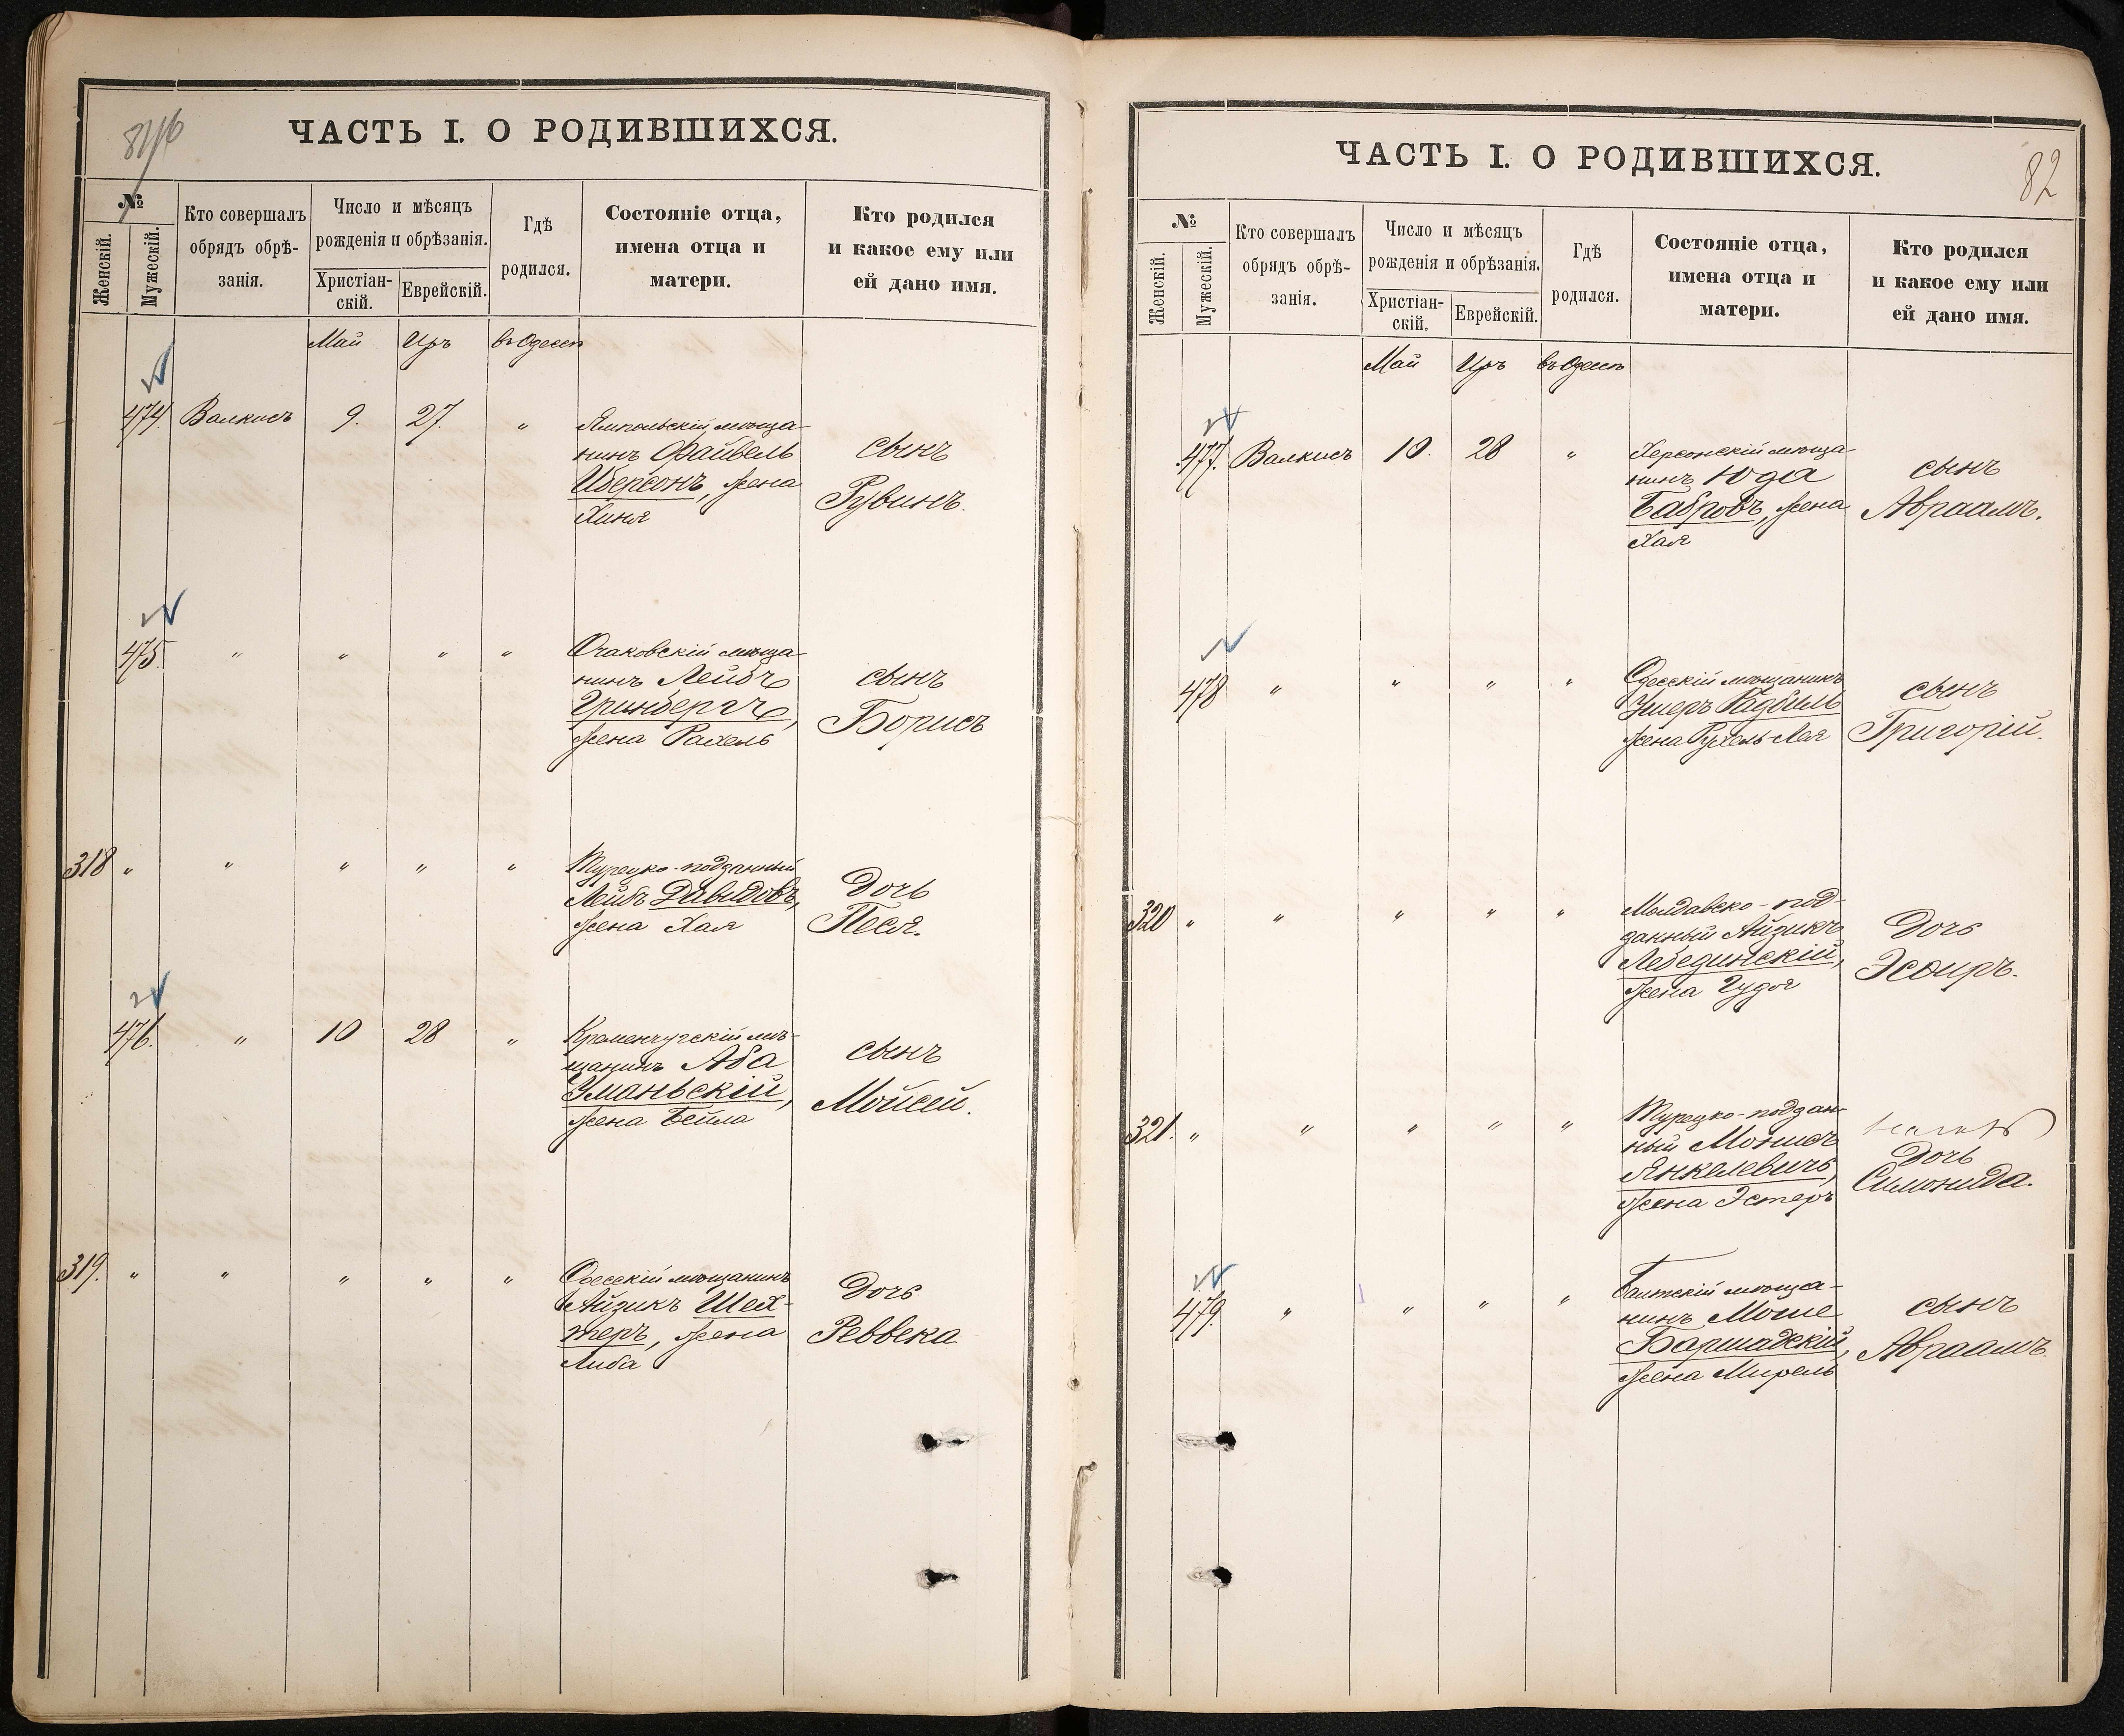 ЧАСТЬ I. О РОДИВШИХСЯ.
№
Женскій.
Мужескій.
Кто совершалъ
обрядъ обрѣ-
занія.
Число и мѣсяцъ
рожденія и обрѣзанія.
Христіан-
скій.
Еврейскій.
Гдѣ
родился.
Состояніе отца,
имена отца и
матери.
Кто родился
и какое ему или
ей дано имя.
Май Иръ въ Одессѣ
474. Валкисъ 9. 27. "
Ямпольскій мѣща-
нинъ Файвель
Иберсонъ, жена
Хиня
сынъ
Рувинъ.
475. " " " "
Очаковскій мѣща-
нинъ Лейбъ
Гринбергъ,
жена Рахель
сынъ
Борисъ
318 " " " " "
Турецко-подданный
Лейбъ Давидовъ,
жена Хая
Дочь
Песя.
476. " 10 28 "
Кременчугскій мѣ-
щанинъ Аба
Уманьскій,
жена Бейла
сынъ
Мойсей.
319. " " " " "
Одесскій мѣщанинъ
Айзикъ Шех-
теръ, жена
Либа
Дочь
Реввека
ЧАСТЬ I. О РОДИВШИХСЯ.
82
№
Женскій.
Мужескій.
Кто совершалъ
обрядъ обрѣ-
занія.
Число и мѣсяцъ
рожденія и обрѣзанія.
Христіан-
скій.
Еврейскій.
Гдѣ
родился.
Состояніе отца,
имена отца и
матери.
Кто родился
и какое ему или
ей дано имя.
Май Иръ въ Одессѣ
477. Валкисъ 10. 28 "
Херсонскій мѣща-
нинъ Юда
Бабровъ, жена
Хая
сынъ
Авраамъ.
478 " " " "
Одесскій мѣщанинъ
Ушеръ Радбиль
жена Рухель-Лея
сынъ
Григорій.
320 " " " " "
Молдавско-под-
данный Айзикъ
Лебединскій,
жена Гудя
Дочь
Эсѳиръ.
321. " " " " "
Турецко-поддан-
ный Мошко
Янкелевичъ,
жена Эстеръ
Дочь
Симонида.
479. " " " "
Балтскій мѣща-
нинъ Моше
Баршадскій,
жена Мирель
сынъ
Авраамъ.